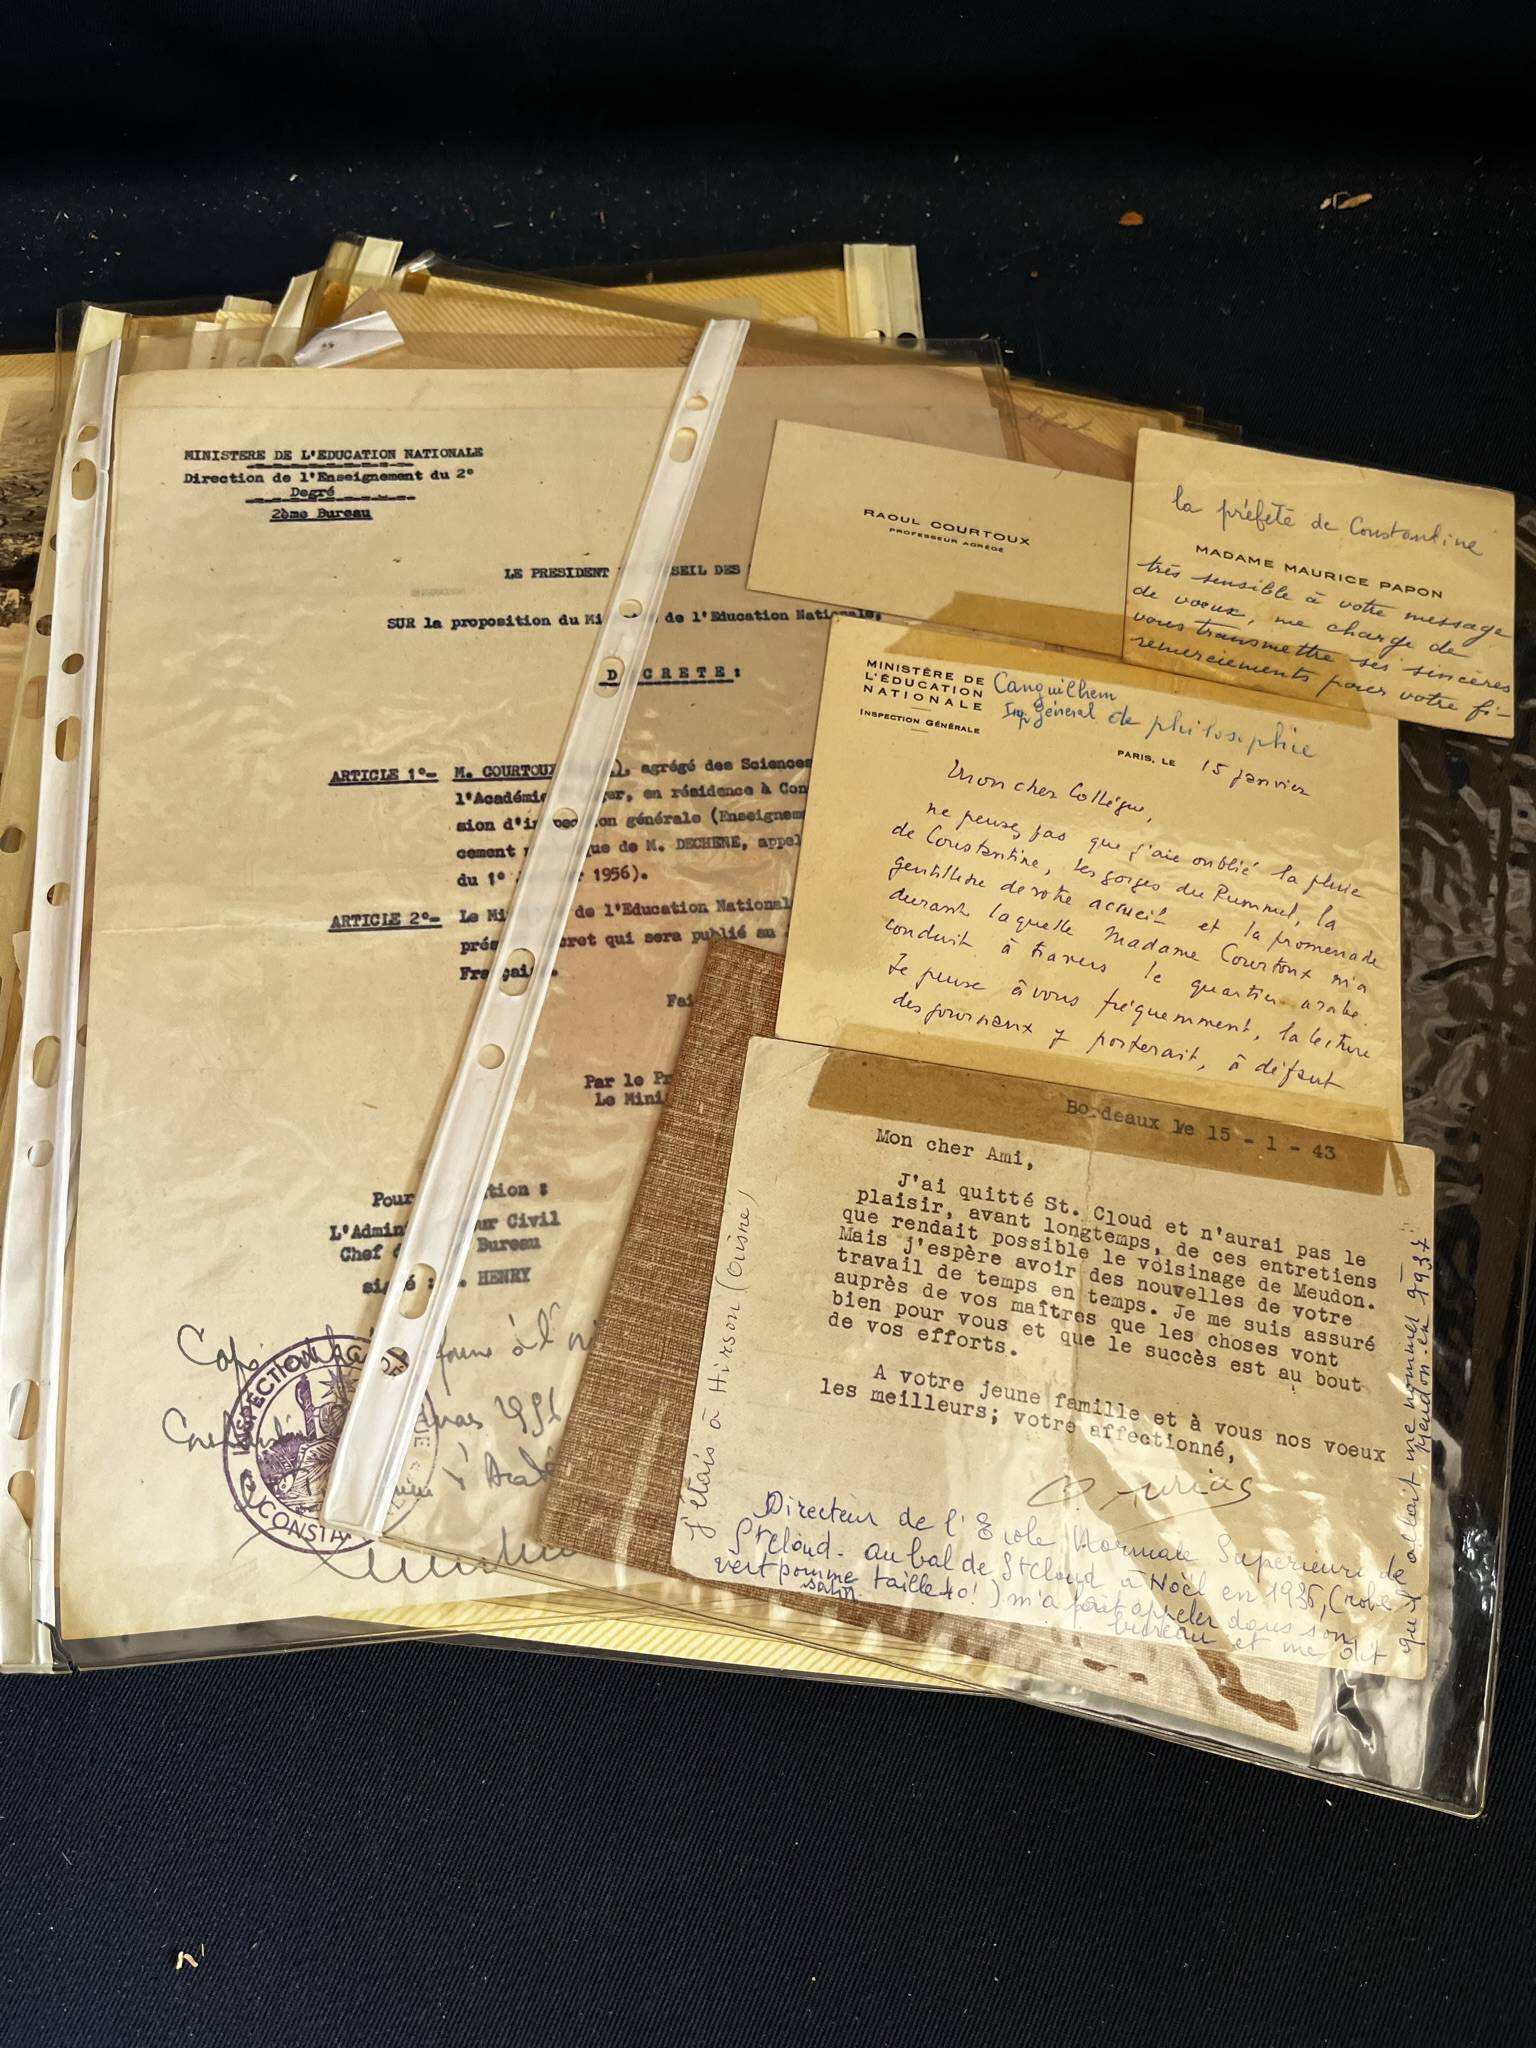 MINISTERE DE L'EDUCATION NATIONALE
Direction de l'Enseignement du 2°
Degré
2ème Bureau
LE PRESIDENT SEIL DES
SUR la proposition du Mi de l'Education Nationale,
D CRETE :
ARTICLE 1°- M. COURTOUX ), agrégé des Sciences
l'Académie ger, en résidence à Con
sion d'inspec on générale (Enseignem
cement n que de M. DECHENE, appel
du 1° r 1956).
ARTICLE 2°- Le Mi de l'Education National
prés cret qui sera publié au
Français.
Fai
Par le Pr
Le Mini
Pour tion :
L'Admin ur Civil
Chef d Bureau
signé : . HENRY
Copie
INSPECTION
CONSTA
RAOUL COURTOUX
PROFESSEUR AGRÉGÉ
la préfète de Constantine
MADAME MAURICE PAPON
très sensible à votre message
de voeux, me charge de
vous transmettre ses sincères
remerciements pour votre fi-
MINISTÈRE DE
L'ÉDUCATION
NATIONALE
INSPECTION GÉNÉRALE
Canguilhem
Insp général de philosophie
PARIS, LE 15 janvier
Mon cher Collègue,
ne pensez pas que j'aie oublié la pluie
de Constantine, les gorges du Rummel, la
gentillesse de votre accueil et la promenade
durant laquelle Madame Courtoux m'a
conduit à travers le quartier arabe.
Je pense à vous fréquemment, la lecture
des journaux y porterait, à défaut
Bordeaux le 15 - 1 - 43
Mon cher Ami,
J'ai quitté St. Cloud et n'aurai pas le
plaisir, avant longtemps, de ces entretiens
que rendait possible le voisinage de Meudon.
Mais j'espère avoir des nouvelles de votre
travail de temps en temps. Je me suis assuré
auprès de vos maîtres que les choses vont
bien pour vous et que le succès est au bout
de vos efforts.
A votre jeune famille et à vous nos voeux
les meilleurs; votre affectionné,
Directeur de l'Ecole Normale Supérieure de
St Cloud - au bal de St Cloud à Noël en 1936, (robe
vert pomme taille 40!) m'a fait appeler dans son
satin
bureau et me dit
qu'il allait me nommer à
Meudon en 1937
j'étais à Hirson (Aisne)